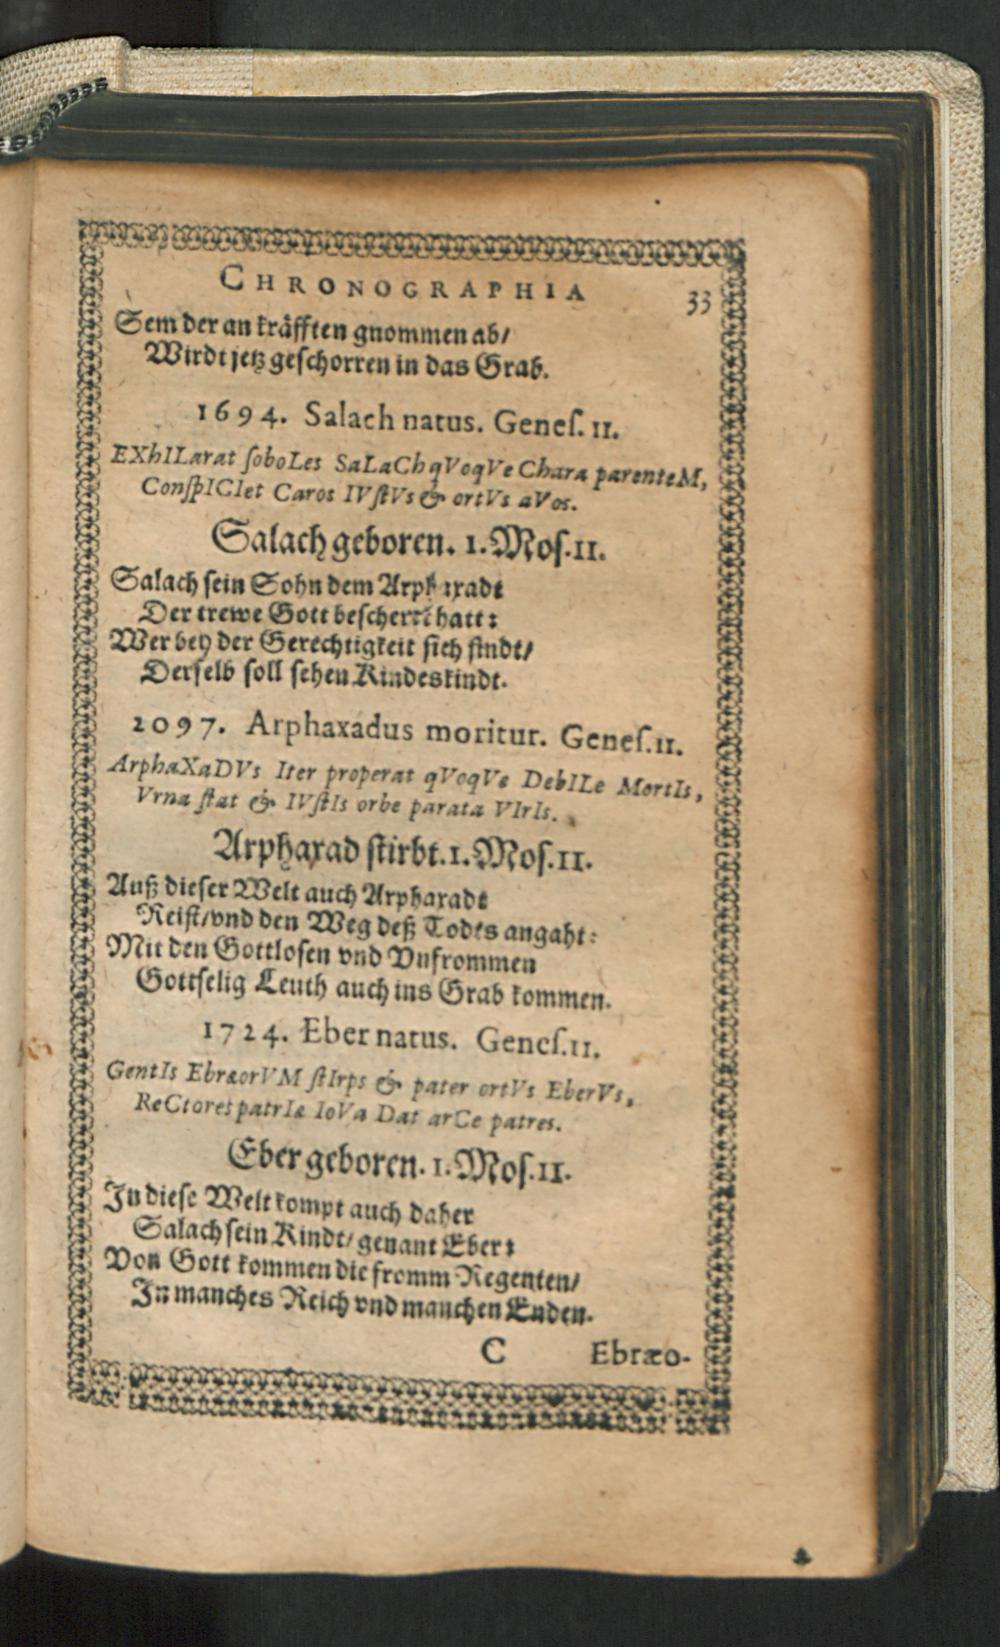 CHRONOGRAPHIA 33
Sem der an kräfften gnommen ab/
Wirdt jetz geschorren in das Grab.
1694. Salach natus. Geneſ. 11.
EXhILarat ſoboLes SaLaCh qVoqVe Chara parenteM,
ConſpICIet Caros IVſtVs & ortVs aVos.
Salach geboren. 1. Moſ. 11.
Salach ſein Sohn dem Arphaxadt
Der trewe Gott beſchert hatt:
Wer bey der Gerechtigkeit ſich findt/
Derſelb ſoll ſehen Kindeskindt.
2097. Arphaxadus moritur. Geneſ. 11.
ArphaXaDVs Iter properat qVoqVe DebILe MortIs,
Vrna ſtat & IVſtIs orbe parata VIrIs.
Arphaxad ſtirbt. 1. Moſ. 11.
Auß dieſer Welt auch Arphaxadt
Reiſt/vnd den Weg deß Todes angaht:
Mit den Gottloſen vnd Vnfrommen
Gottſelig Leuth auch ins Grab kommen.
1724. Eber natus. Geneſ. 11.
GentIs EbræorVM ſtIrps & pater ortVs EberVs,
ReCtores patrIæ IoVa Dat arCe patres.
Eber geboren. 1. Moſ. 11.
In dieſe Welt kompt auch daher
Salach ſein Kindt/ genant Eber:
Von Gott kommen die fromm Regenten/
In manches Reich vnd manchen Enden.
C Ebræo-